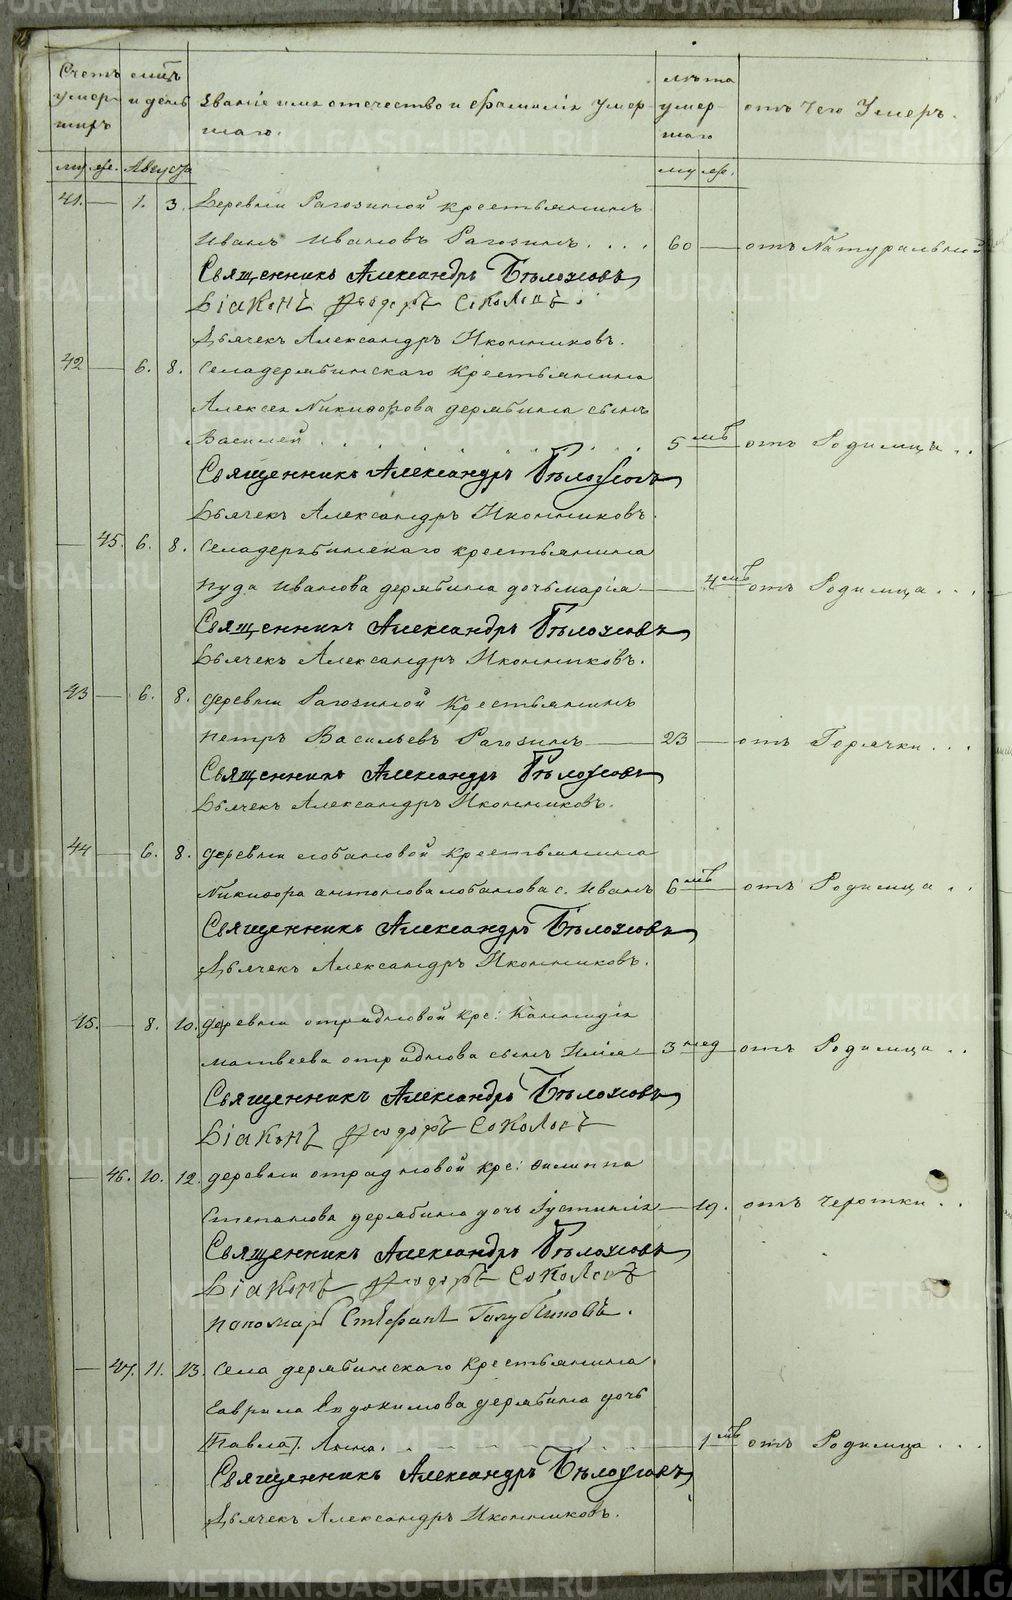 METRIKI.GASO-URAL.RU
Счетъ умершихъ
мѣсяцъ и день
Званіе имя отечество и фамилія умершаго.
лѣта умершаго
отъ чего Умеръ.
му же. Августа
му. же.
41. — 1. 3. Деревни Рагозиной крестьянинъ
Иванъ Ивановъ Рагозинъ . . . . 60 — отъ Натуральной
Священникъ Александръ Бѣлоусовъ
Діаконъ Ѳеодоръ Соколовъ.
Дьячекъ Александръ Иконниковъ.
42 — 6. 8. Селадерябинскаго Крестьянина
Алексея Никифорова дерябина сынъ
Василей . . . . 5 мѣ — отъ Родимца . .
Священникъ Александръ Бѣлоусовъ
Дьячекъ Александръ Иконниковъ.
— 45. 6. 8. Селадерябинскаго крестьянина
Пуда Иванова дерябина дочьмарія — 4 мѣ отъ Родимца . . .
Священникъ Александръ Бѣлоусовъ
Дьячекъ Александръ Иконниковъ.
43 — 6. 8. деревни Рагозиной Крестьянинъ
Петръ Васильевъ Рагозинъ — 23 — отъ Горячки . . .
Священникъ Александръ Бѣлоусовъ
Дьячекъ Александръ Иконниковъ.
44 — 6. 8. деревни лобановой крестьянина
Никифора антонова лобанова с. Иванъ 6 мѣ — отъ Родимца . .
Священникъ Александръ Бѣлоусовъ
Дьячекъ Александръ Иконниковъ.
45. — 8. 10. деревни отрадновой кре:
матвеева отраднова сынъ Илія — 3 нед отъ Родимца . .
Священникъ Александръ Бѣлоусовъ
Діаконъ Ѳеодоръ Соколовъ
— 46. 10. 12. деревни отрадновой кре: филиппа
Степанова дерябина дочь Іустинія — 19. отъ Чеготки . .
Священникъ Александръ Бѣлоусовъ
Діаконъ Ѳеодоръ Соколовъ
Пономарь Стефанъ Голубчиковъ.
— 47. 11. 13. Села дерябинскаго Крестьянина
Гаврила Евдокимова дерябина дочь
[Павла]. Анна. — 1 мѣ отъ Родимца . . .
Священникъ Александръ Бѣлоусовъ
Дьячекъ Александръ Иконниковъ.